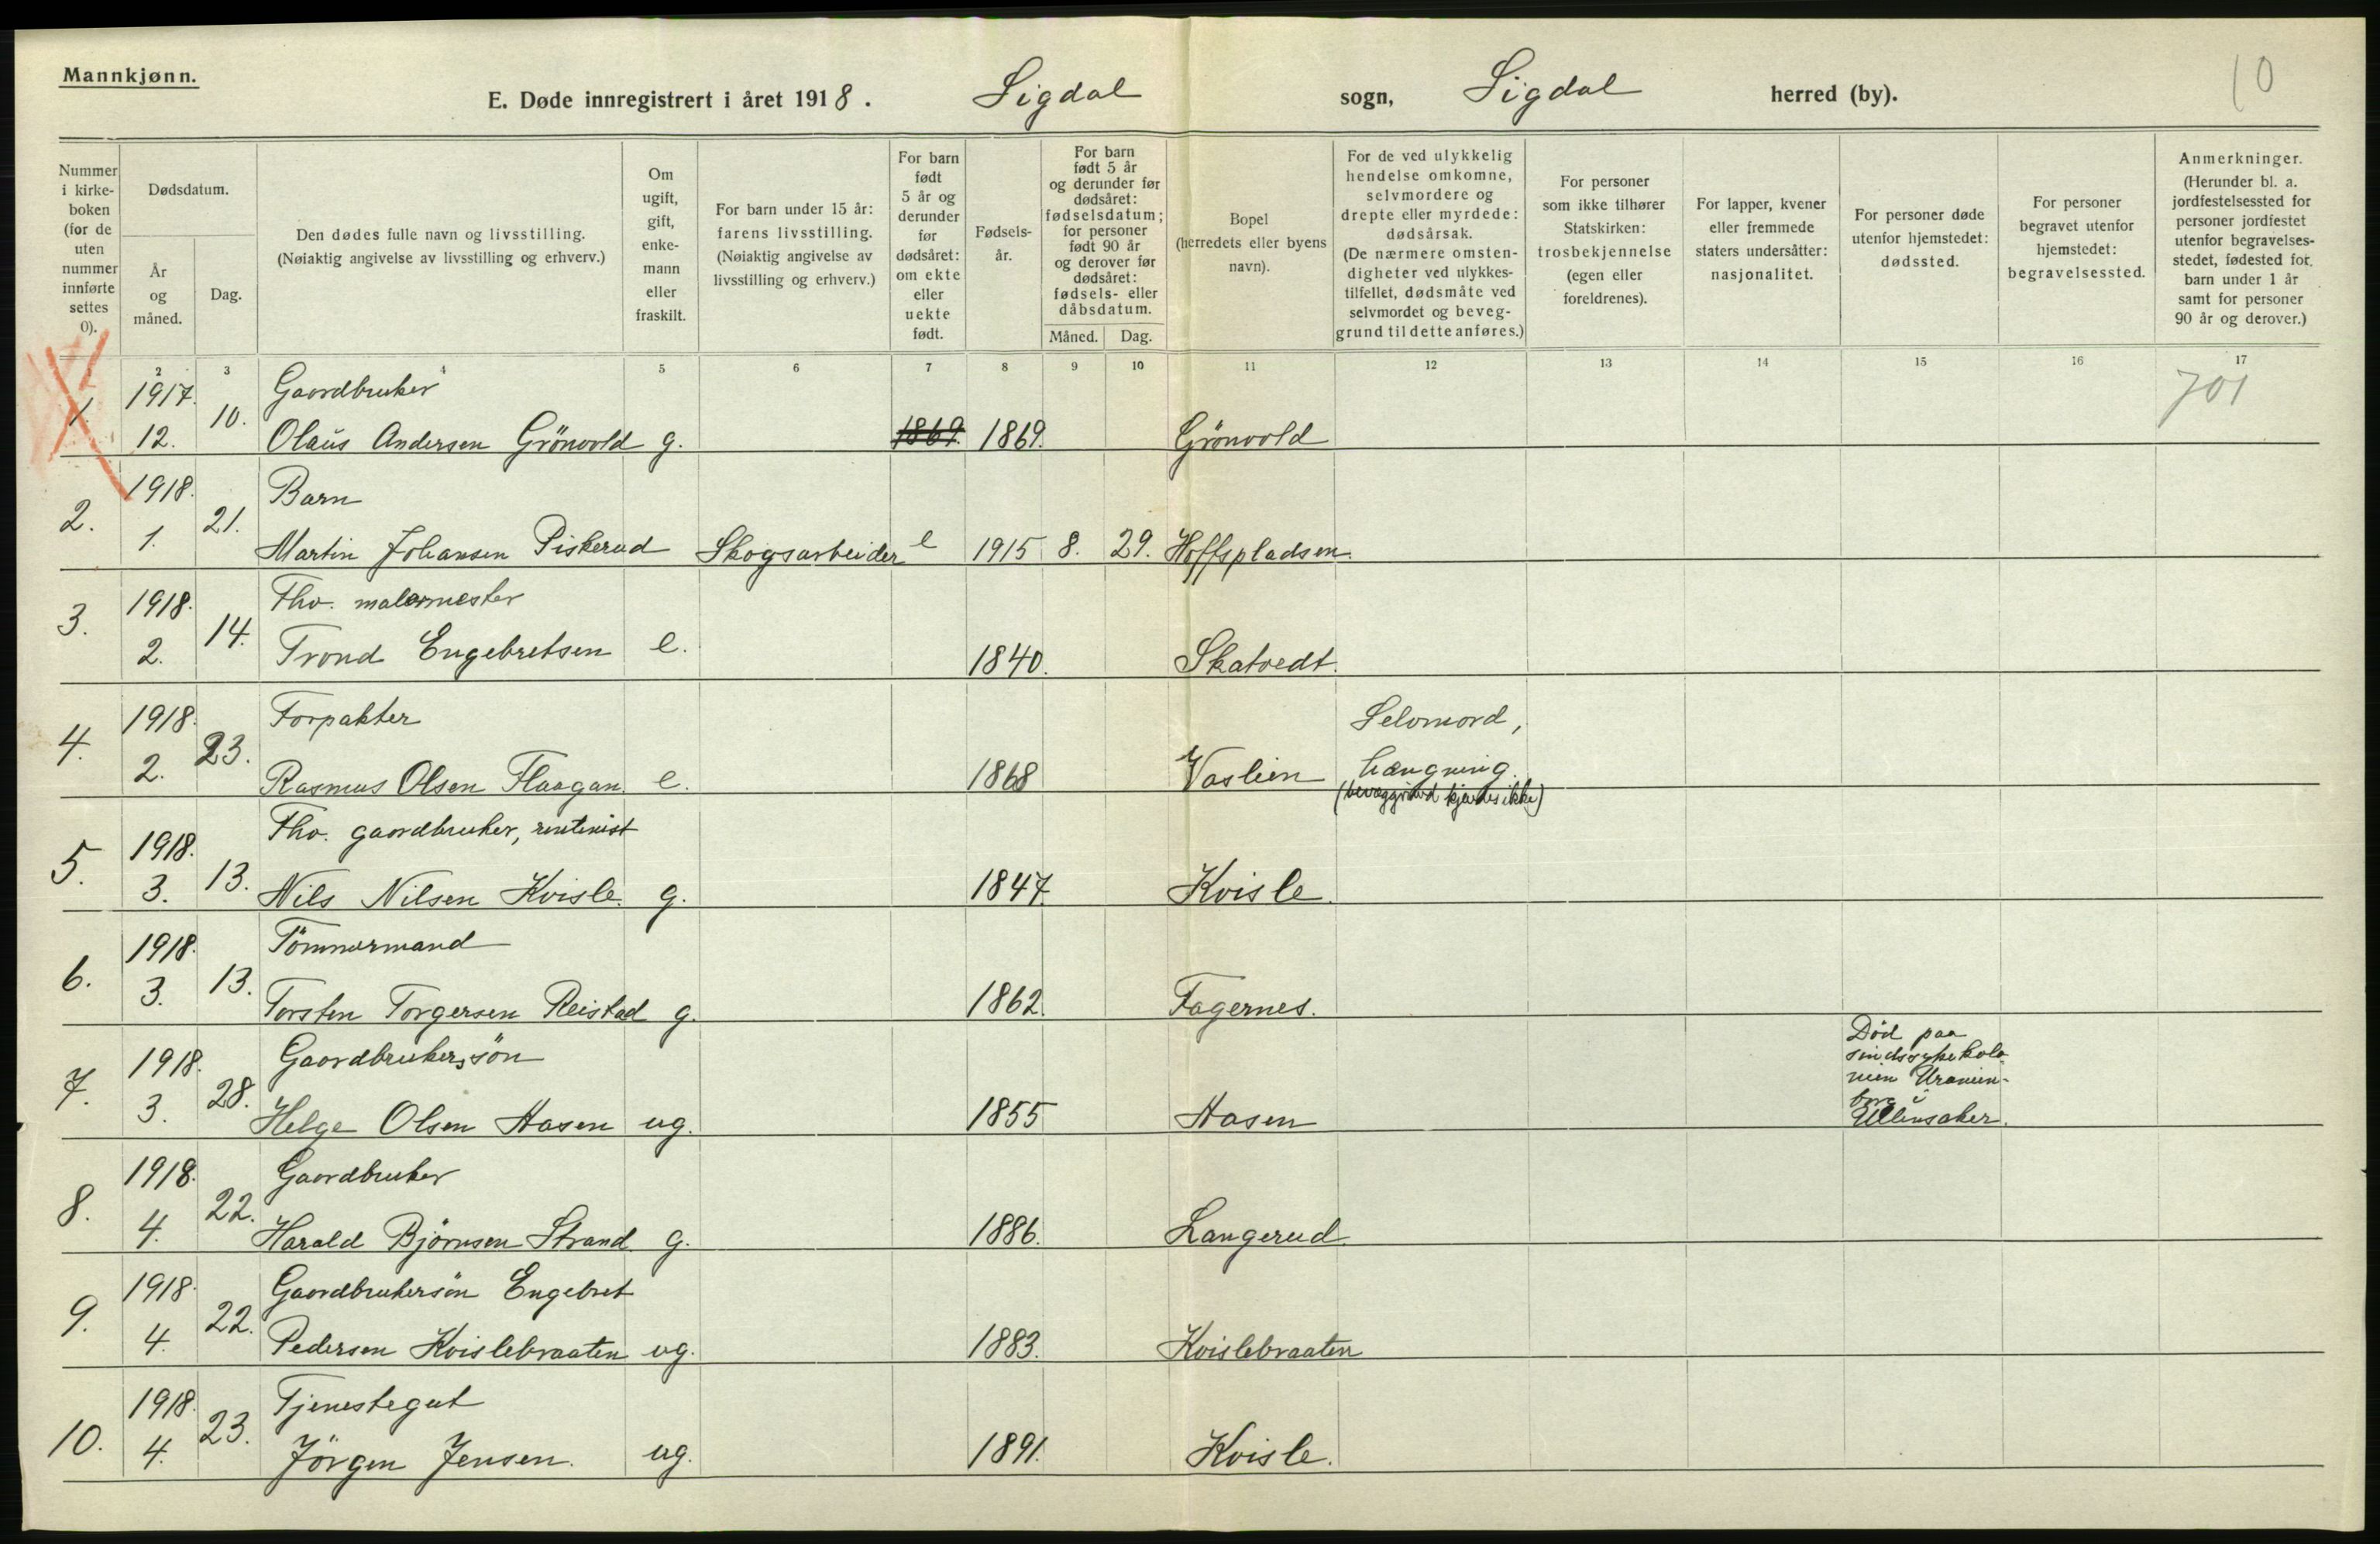 Mannkjønn.
E. Døde innregistrert i året 1918. Sigdal sogn, Sigdal herred (by).
10
Nummer i kirke-boken (for de uten nummer innførte settes 0).
Dødsdatum.
År og måned.
Dag.
Den dødes fulle navn og livsstilling.
(Nøiaktig angivelse av livsstilling og erhverv.)
Om ugift, gift, enke-mann eller fraskilt.
For barn under 15 år: farens livsstilling. (Nøiaktig angivelse av livsstilling og erhverv.)
For barn født 5 år og derunder før dødsåret: om ekte eller uekte født.
Fødsels-år.
For barn født 5 år og derunder før dødsåret: fødselsdatum; for personer født 90 år og derover før dødsåret: fødsels- eller dåbsdatum.
Måned. Dag.
Bopel (herredets eller byens navn).
For de ved ulykkelig hendelse omkomne, selvmordere og drepte eller myrdede: dødsårsak. (De nærmere omsten-digheter ved ulykkes-tilfellet, dødsmåte ved selvmordet og beveg-grund til dette anføres.)
For personer som ikke tilhører Statskirken: trosbekjennelse (egen eller foreldrenes).
For lapper, kvener eller fremmede staters undersåtter: nasjonalitet.
For personer døde utenfor hjemstedet: dødssted.
For personer begravet utenfor hjemstedet: begravelsessted.
Anmerkninger. (Herunder bl. a. jordfestelsessted for personer jordfestet utenfor begravelses-stedet, fødested for barn under 1 år samt for personer 90 år og derover.)
1 2 3 4 5 6 7 8 9 10 11 12 13 14 15 16 17
1917. Gaardbruker 701
1. 12. 10. Olaus Andersen Grönvold g. 1869. 1869. Grönvold
1918. Barn
2. 1. 21. Martin Johansen Piskerud Skogsarbeider e 1915 8. 29. Hoffspladsen.
1918. Fhv. malermester
3. 2. 14. Trond Engebretsen e. 1840. Skatvedt.
1918. Forpakter Selvmord,
4. 2. 23. Rasmus Olsen Flaagan. e. 1868 Vaslien hængning.
(bevæggrund kjendes ikke)
1918. Fhv. gaardbruker, rentenist
5. 3. 13. Nils Nilsen Kvisle. g. 1847 Kvisle.
1918. Tömmermand
6. 3. 13. Torsten Torgersen Reistad g. 1862. Fagernes.
1918. Gaardbrukerssön Död paa
sindssykekolo-
nien Uranien-
borg i
7. 3. 28. Helge Olsen Aasen ug. 1855 Aasen Ullensaker.
1918. Gaardbruker
8. 4. 22. Harald Björnsen Strand. g. 1886. Langerud.
1918. Gaardbrukersön Engebret
9. 4. 22. Pedersen Kvislebraaten ug. 1883. Kvislebraaten
1918. Tjenestegut
10. 4. 23. Jörgen Jensen. ug. 1891. Kvisle.